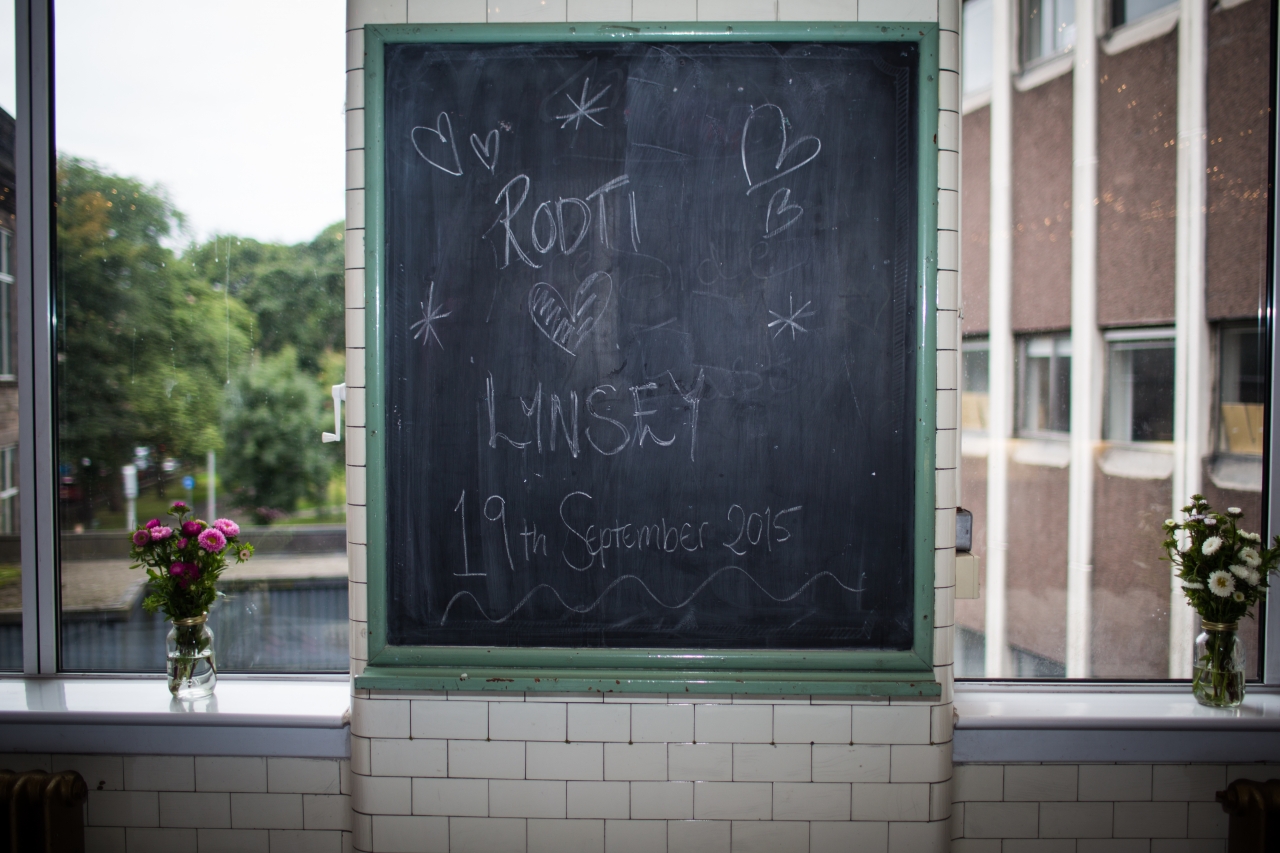 RODTI
B
LYNSEY
19th September 2015